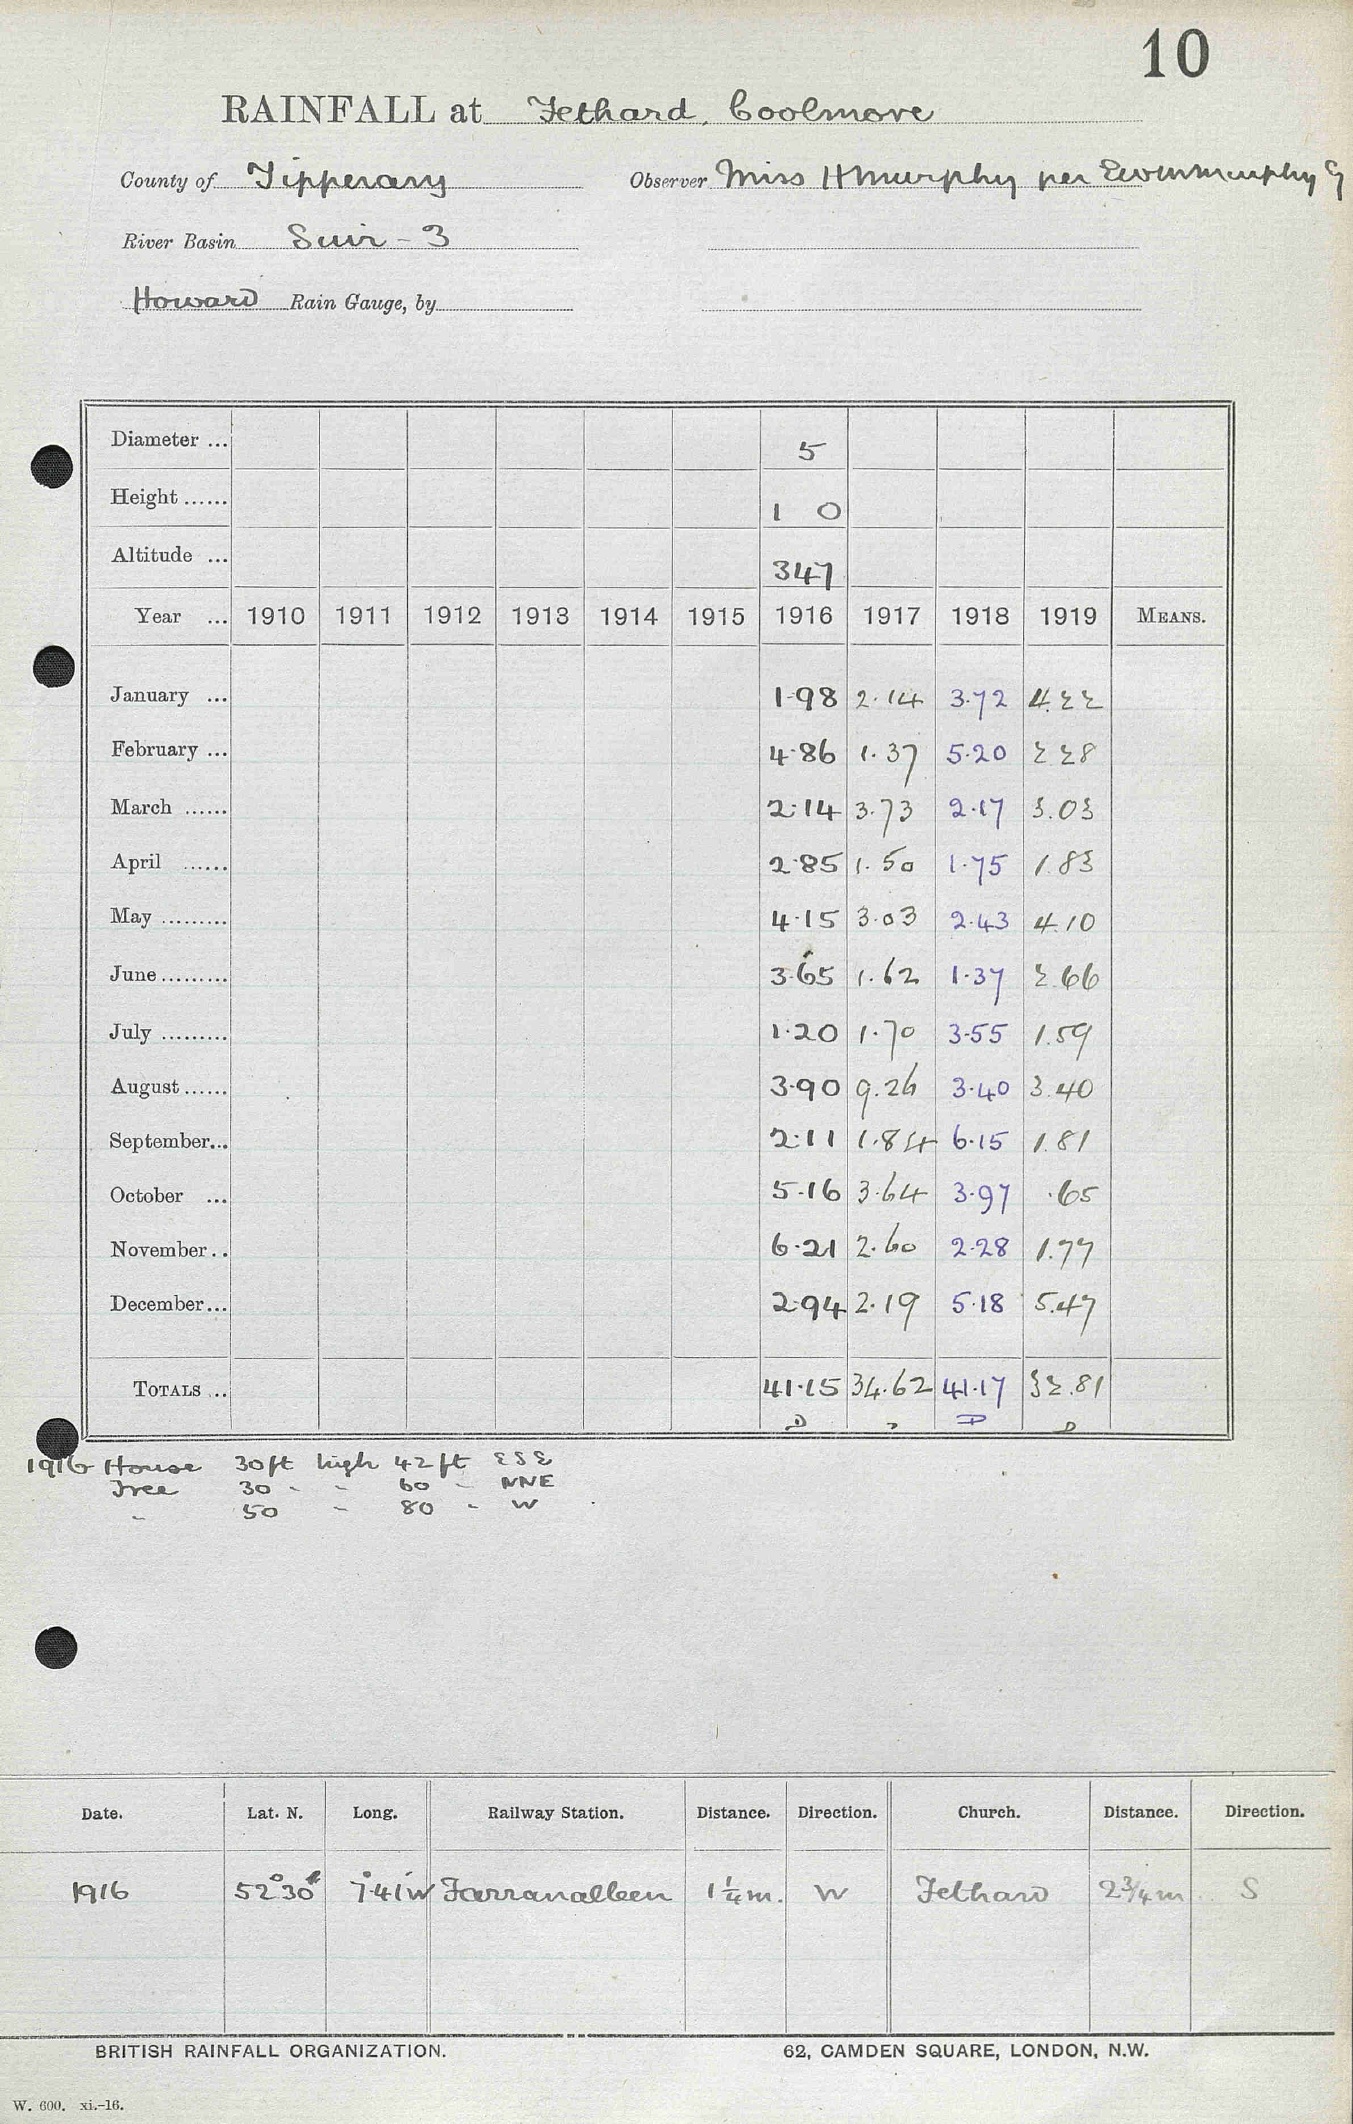 10
RAINFALL at Fethard, Coolmore
County of Tipperary Observer Miss H Murphy per
River Basin Suir - 3
Howard Rain Gauge, by
Diameter ... 5
Height ...... 1 0
Altitude ... 347
Year ... 1910 1911 1912 1913 1914 1915 1916 1917 1918 1919 MEANS.
January ... 1.98 2.14 3.72 4.22
February ... 4.86 1.37 5.20 2.28
March ...... 2.14 3.73 2.17 3.03
April ...... 2.85 1.50 1.75 1.83
May ......... 4.15 3.03 2.43 4.10
June ......... 3.65 1.62 1.37 2.66
July ......... 1.20 1.70 3.55 1.59
August ...... 3.90 9.26 3.40 3.40
September... 2.11 1.84 6.15 1.81
October ... 5.16 3.64 3.97 .65
November.. 6.21 2.60 2.28 1.77
December... 2.94 2.19 5.18 5.47
TOTALS ... 41.15 34.62 41.17 32.81
D D D D
1916 House 30 ft high 42 ft ESE
Tree 30 " " 60 " NNE
" 50 " 80 " W
Date. Lat. N. Long. Railway Station. Distance. Direction. Church. Distance. Direction.
1916 52°30' 7°41'W Farranaleen 1 1/4 m. W Fethard 2 3/4 m S
BRITISH RAINFALL ORGANIZATION. 62, CAMDEN SQUARE, LONDON, N.W.
W. 600. xi.-16.